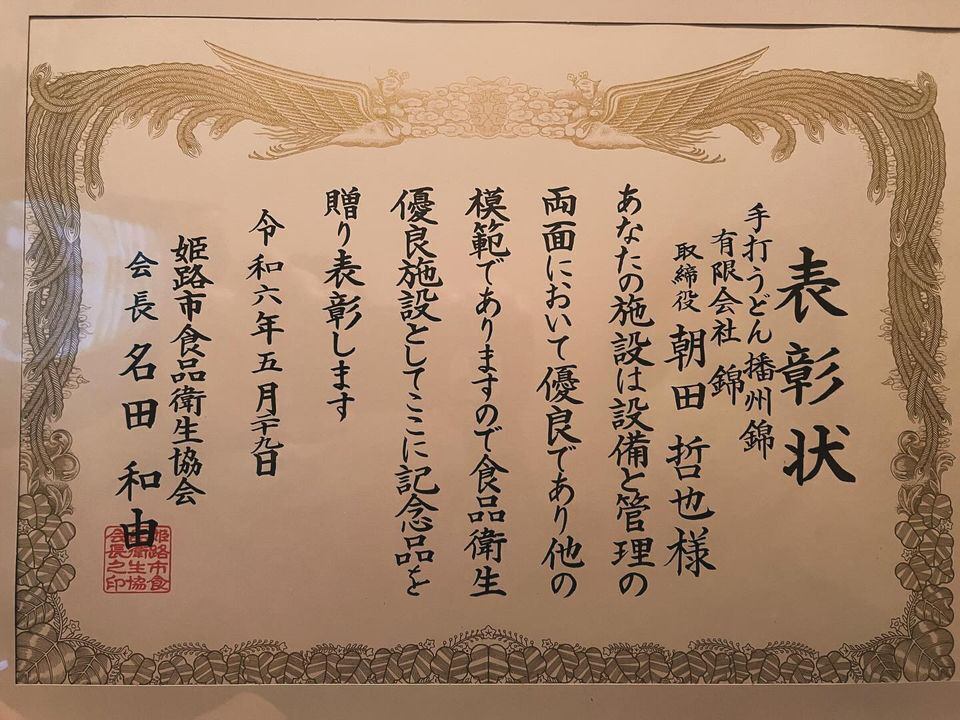 表彰状
手打うどん 播州錦
有限会社 錦
取締役 朝田 哲也様
あなたの施設は設備と管理の
両面において優良であり他の
模範でありますので食品衛生
優良施設としてここに記念品を
贈り表彰します
令和六年五月二十九日
姫路市食品衛生協会
会長 名田 和由
姫路市食
品衛生協
会長之印